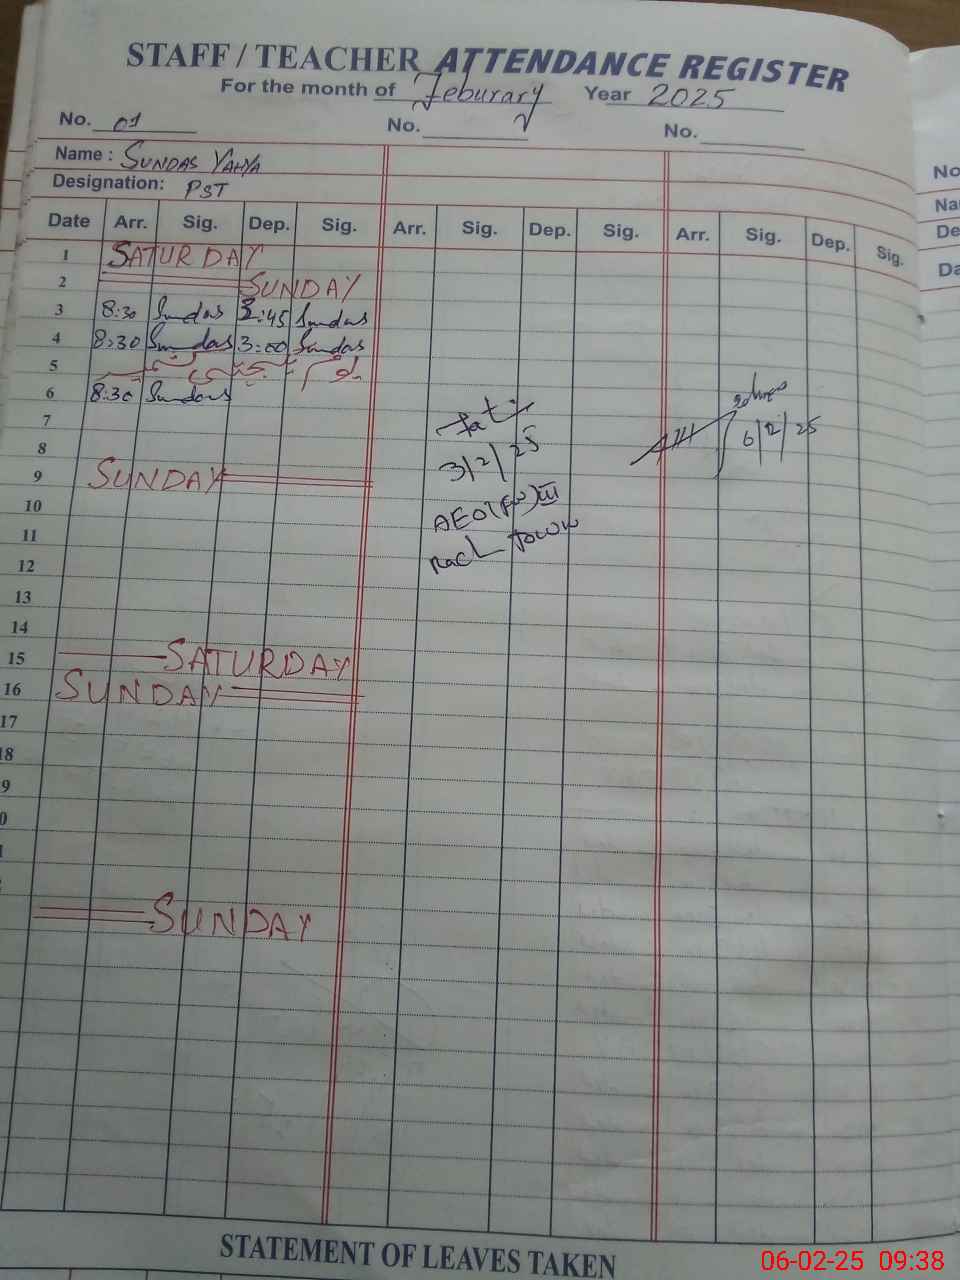 STAFF / TEACHER ATTENDANCE REGISTER
For the month of Feburary Year 2025
No. 01 No. No.
Name : SUNDAS YAHYA
Designation: PST
Date Arr. Sig. Dep. Sig. Arr. Sig. Dep. Sig. Arr. Sig. Dep. Sig.
1 SATURDAY
2 SUNDAY
3 8:30 Sundas 2:45 Sundas
4 8:30 Sundas 3:00 Sundas
5
6 8:30 Sundas
7
6/2/25
8
3/2/25
9 SUNDAY
10
AEO(W)III
11
town
12
13
14
15 SATURDAY
16 SUNDAY
17
18
9
0
SUNDAY
STATEMENT OF LEAVES TAKEN
06-02-25 09:38
No
Na
De
Da